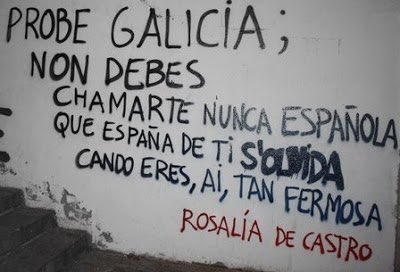 PROBE GALICIA;
NON DEBES
CHAMARTE NUNCA ESPAÑOLA
QUE ESPAÑA DE TI S'OLVIDA
CANDO ERES, AI, TAN FERMOSA
ROSALÍA DE CASTRO